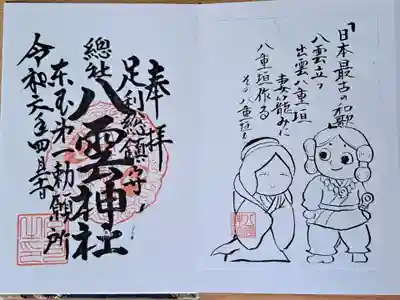 「日本最古の和歌」
八雲立つ
出雲八重垣
妻籠みに
八重垣作る
その八重垣を
奉拝
足利総鎮守
總社
八雲神社
東国第一勅願所
令和六年四月